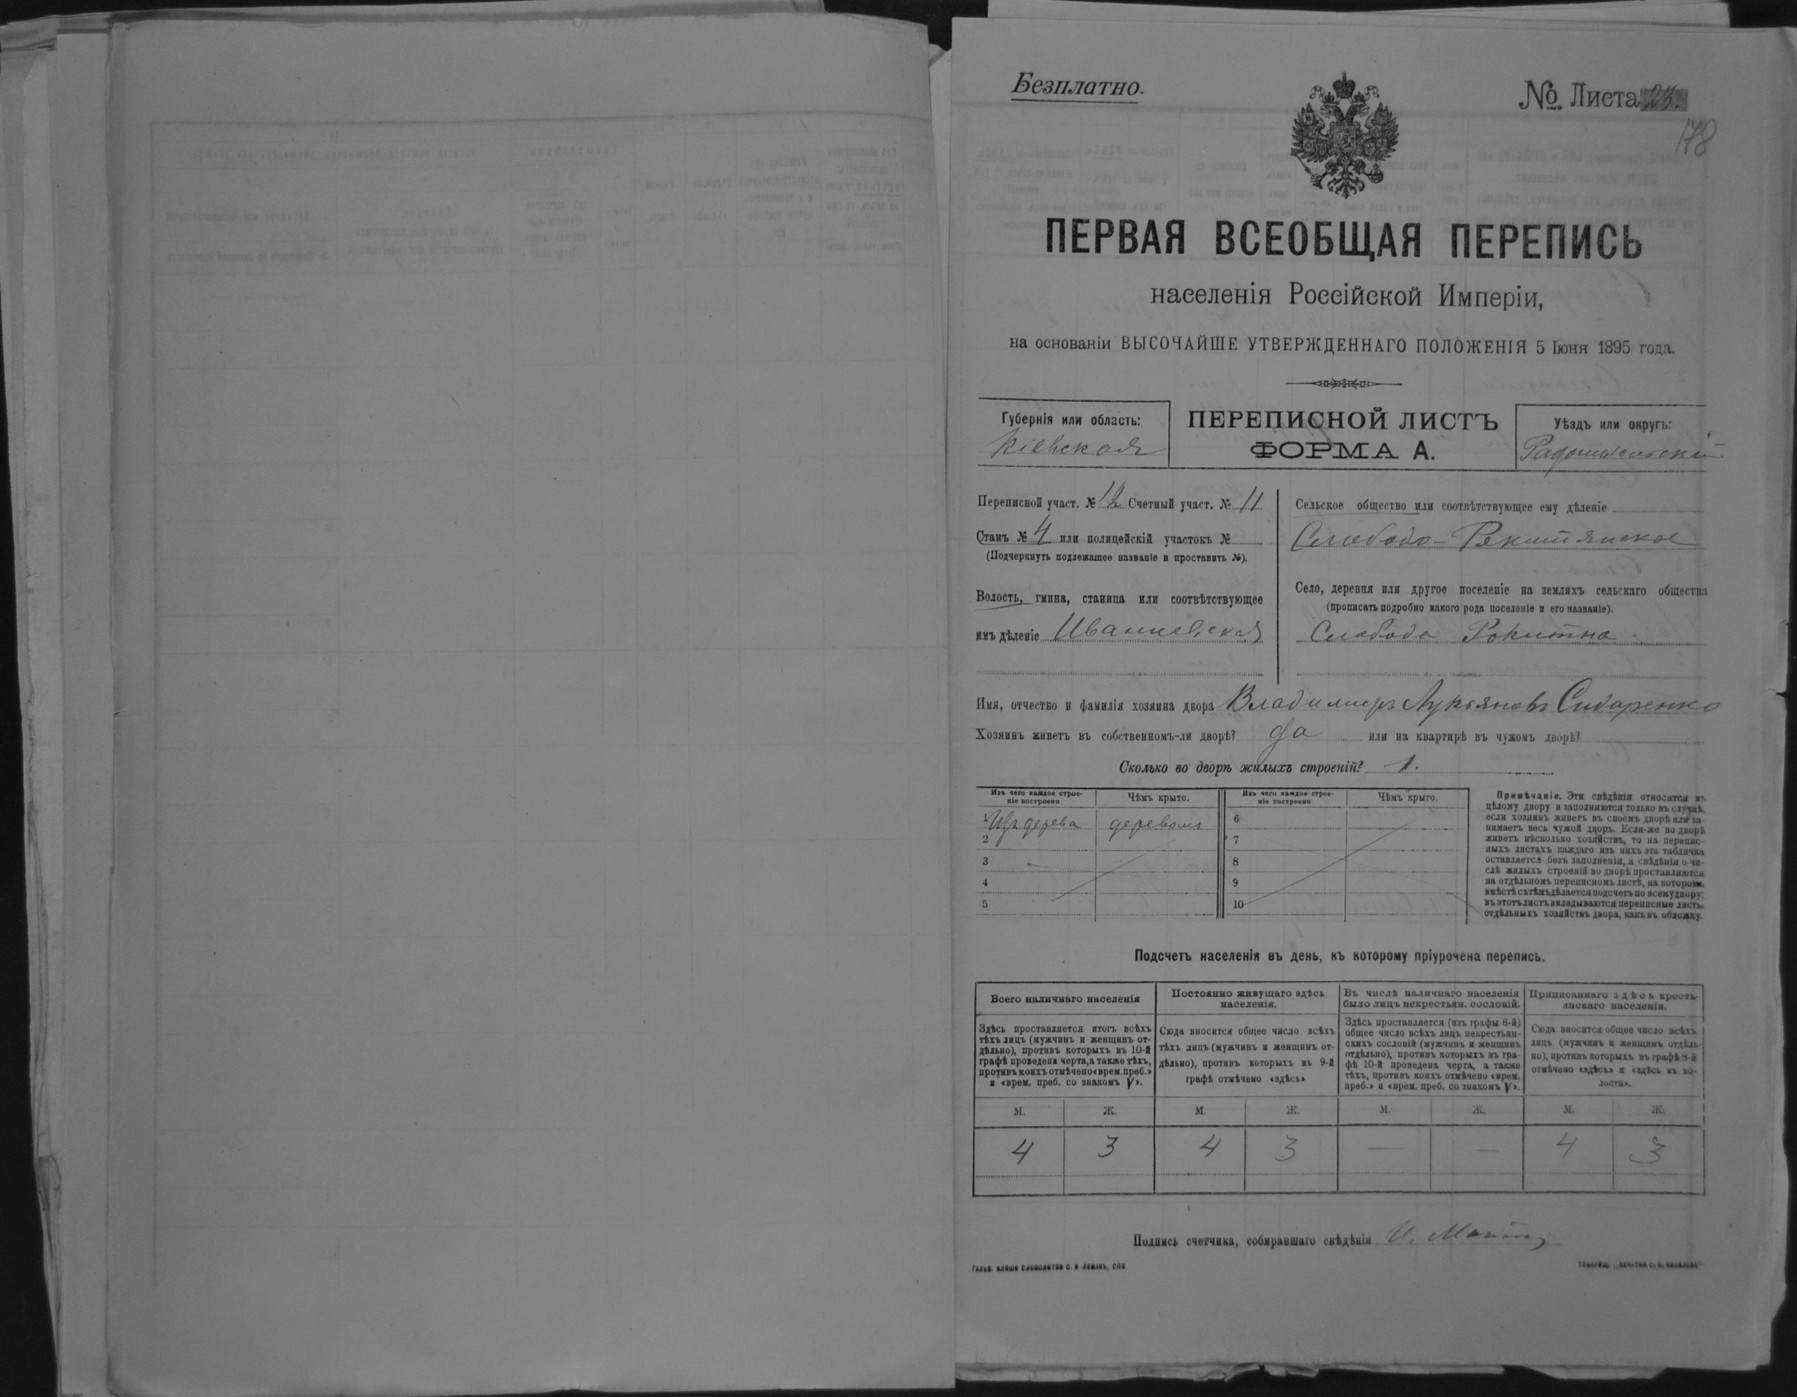 Безплатно.
№ Листа 23.
178
ПЕРВАЯ ВСЕОБЩАЯ ПЕРЕПИСЬ
населенія Россійской Имперіи,
на основаніи ВЫСОЧАЙШЕ УТВЕРЖДЕННАГО ПОЛОЖЕНІЯ 5 Іюня 1895 года.
Губернія или область:
Кіевская
ПЕРЕПИСНОЙ ЛИСТЪ
ФОРМА А.
Уѣздъ или округъ:
Радомысльскій
Переписной участ. № 12 Счетный участ. № 11
Станъ № 4 или полицейскій участокъ №
(Подчеркнуть подлежащее названіе и проставить №).
Волость, гмина, станица или соотвѣтствующее
имъ дѣленіе Иванковская
Сельское общество или соотвѣтствующее ему дѣленіе
Слободо-Рокитянское
Село, деревня или другое поселеніе на земляхъ сельскаго общества
(прописать подробно какого рода поселеніе и его названіе).
Слобода Рокитна
Имя, отчество и фамилія хозяина двора Владимиръ Лукьяновъ Сидоренко
Хозяинъ живетъ въ собственномъ-ли дворѣ? да или на квартирѣ въ чужомъ дворѣ?
Сколько во дворѣ жилыхъ строеній? 1.
Изъ чего каждое строеніе построено
Чѣмъ крыто.
Изъ чего каждое строеніе построено
Чѣмъ крыто.
1 Изъ дерева деревомъ 6
2 7
3 8
4 9
5 10
Примѣчаніе. Эти свѣдѣнія относятся къ
цѣлому двору и заполняются только въ случаѣ,
если хозяинъ живетъ въ своемъ дворѣ или за-
нимаетъ весь чужой дворъ. Если-же во дворѣ
живетъ нѣсколько хозяйствъ, то на перепис-
ныхъ листахъ каждаго изъ нихъ эта табличка
оставляется безъ заполненія, а свѣдѣнія о чи-
слѣ жилыхъ строеній во дворѣ проставляются
на отдѣльномъ переписномъ листѣ, на которомъ
вмѣстѣ съ тѣмъ дѣлается подсчетъ по всему двору;
въ этотъ листъ вкладываются переписные листы
отдѣльныхъ хозяйствъ двора, какъ въ обложку.
Подсчетъ населенія въ день, къ которому пріурочена перепись.
Всего наличнаго населенія
Здѣсь проставляется итогъ всѣхъ
тѣхъ лицъ (мужчинъ и женщинъ от-
дѣльно), противъ которыхъ въ 10-й
графѣ проведена черта, а также тѣхъ,
противъ коихъ отмѣчено «врем. преб.»
и «врем. преб. со знакомъ V».
Постоянно живущаго здѣсь
населенія.
Сюда вносится общее число всѣхъ
тѣхъ лицъ (мужчинъ и женщинъ от-
дѣльно), противъ которыхъ въ 9-й
графѣ отмѣчено «здѣсь»
Въ числѣ наличнаго населенія
было лицъ некрестьян. сословій.
Здѣсь проставляется (изъ графы 6-й)
общее число всѣхъ лицъ некрестьян-
скихъ сословій (мужчинъ и женщинъ
отдѣльно), противъ которыхъ въ гра-
фѣ 10-й проведена черта, а также
тѣхъ, противъ коихъ отмѣчено «врем.
преб.» и «врем. преб. со знакомъ V».
Приписаннаго здѣсь кресть-
янскаго населенія.
Сюда вносится общее число всѣхъ
лицъ (мужчинъ и женщинъ отдѣль-
но), противъ которыхъ въ графѣ 8-й
отмѣчено «здѣсь» и «здѣсь въ во-
лости».
М. Ж. М. Ж. М. Ж. М. Ж.
4 3 4 3 — — 4 3
Подпись счетчика, собиравшаго свѣдѣнія И.